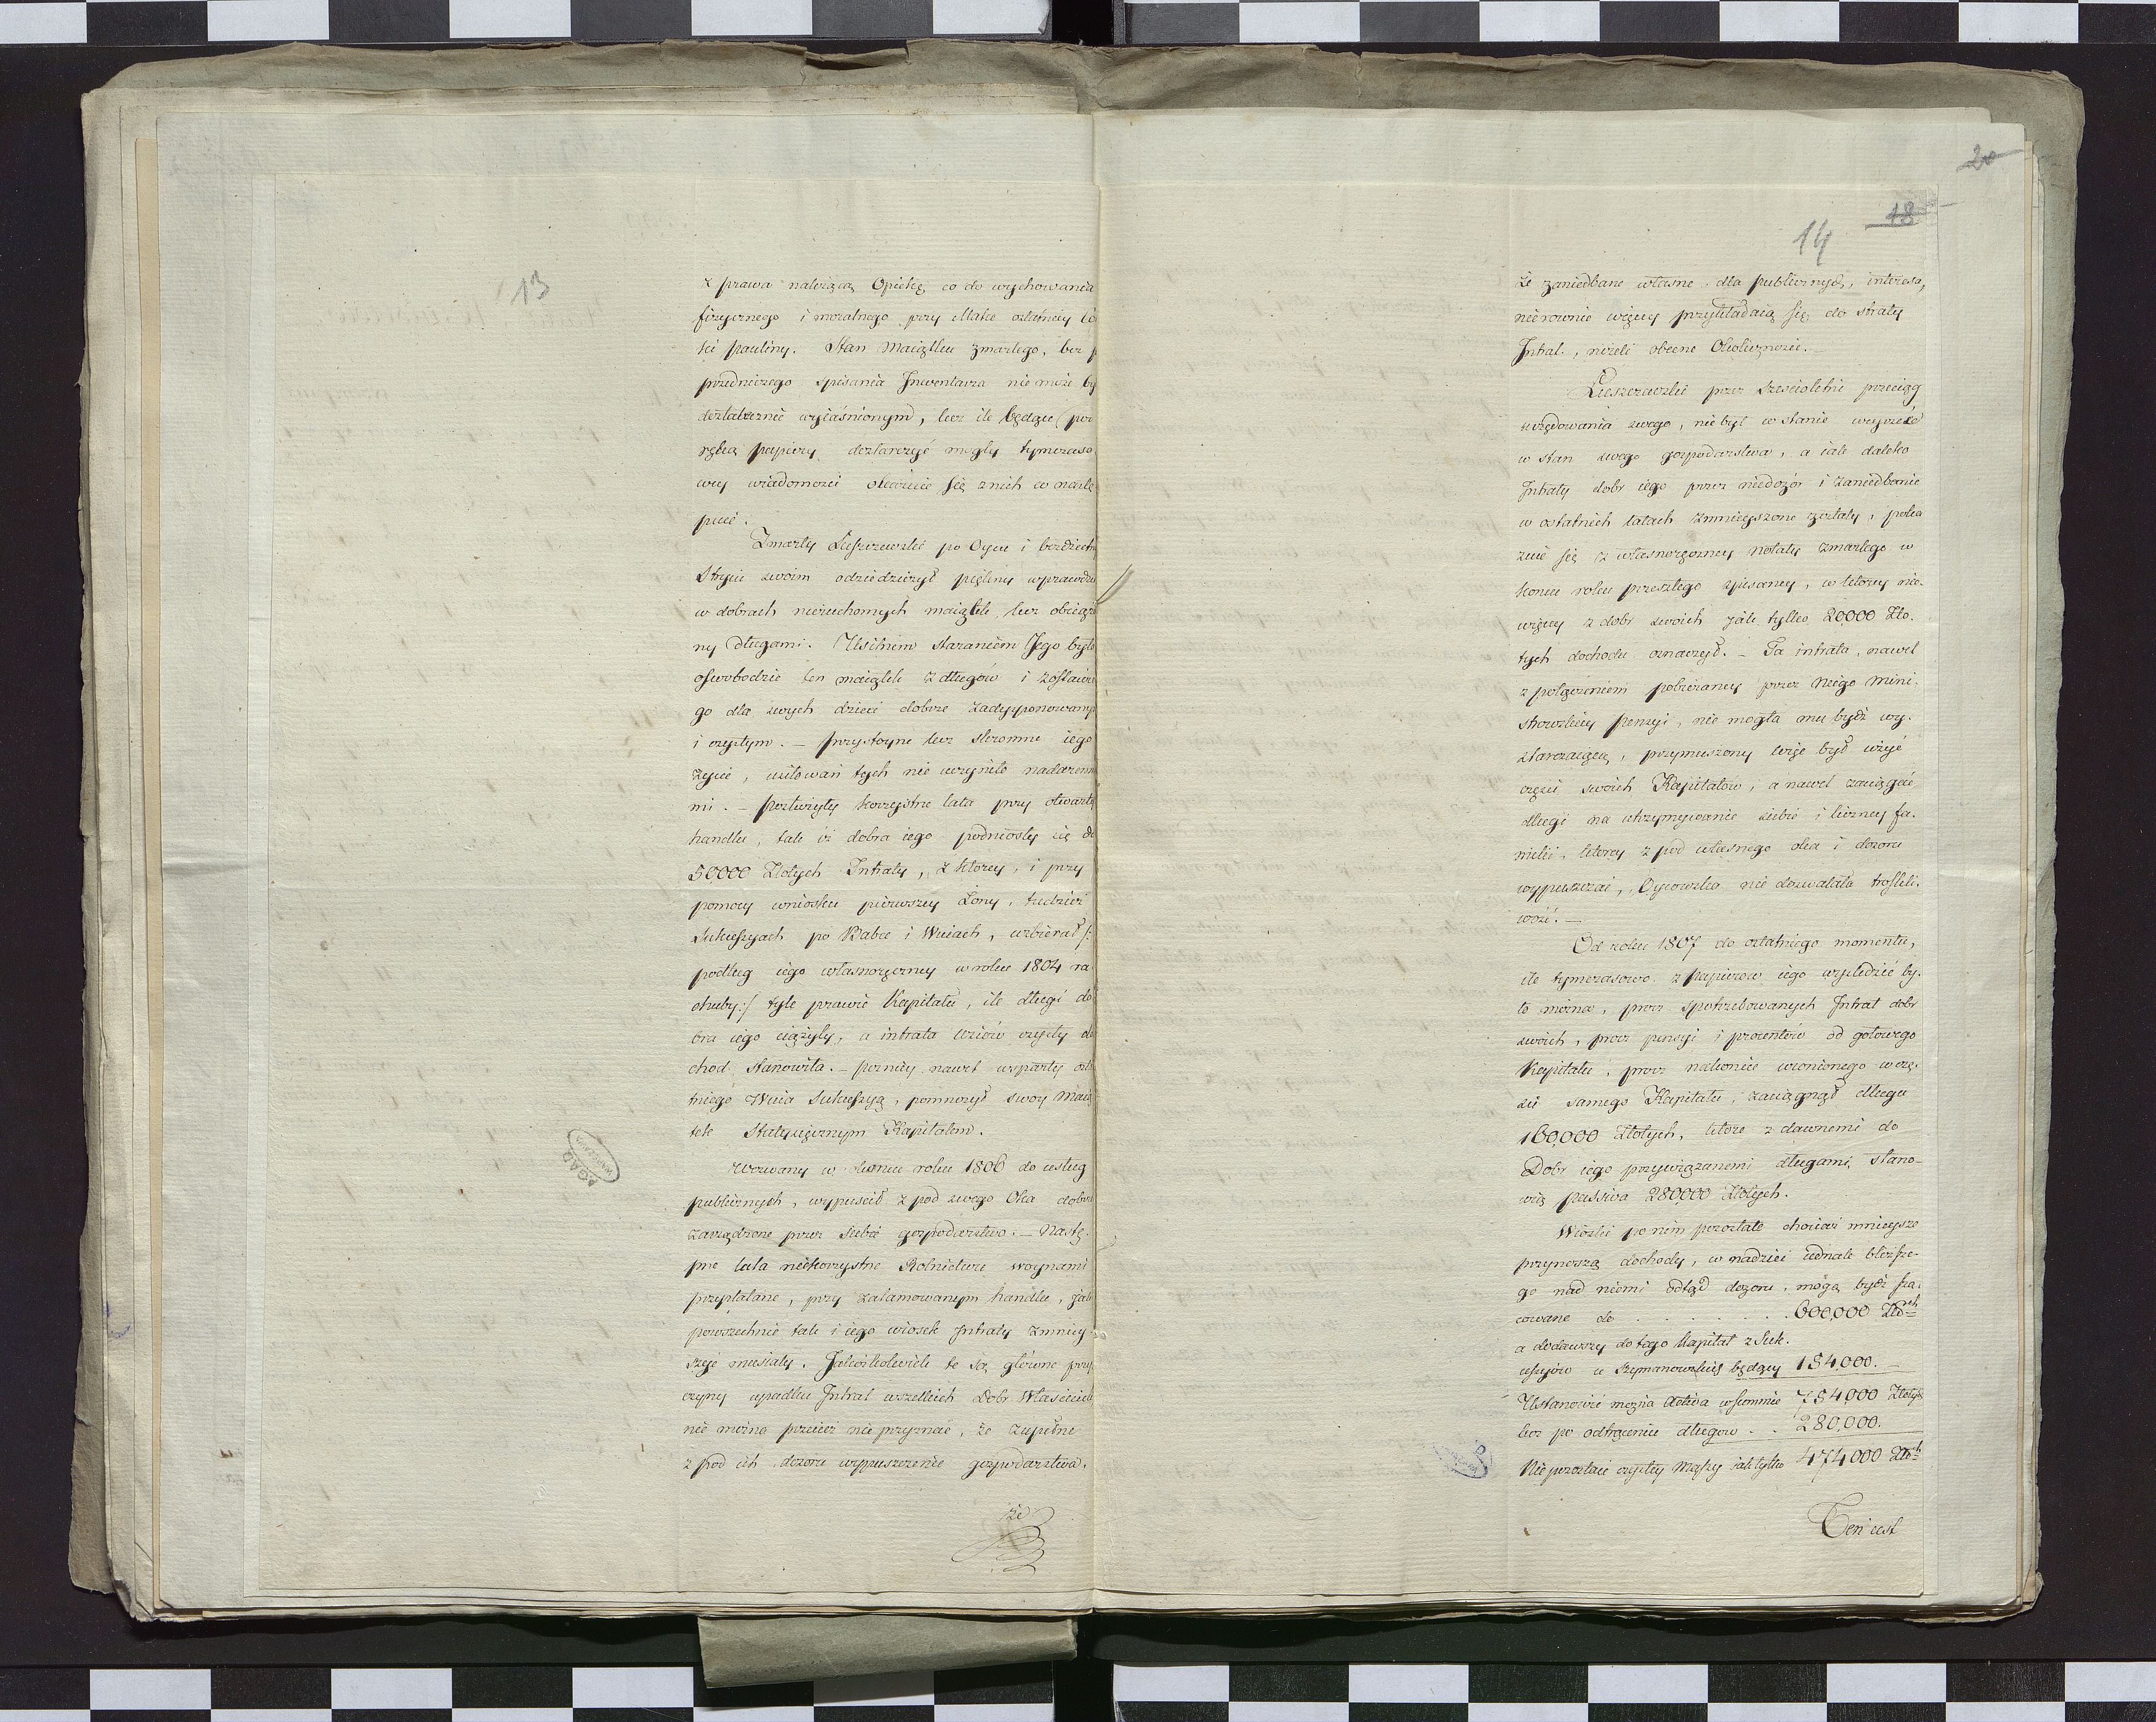 13
z prawa należącą Opiekę, co do wychowania
fizycznego i moralnego przy Matce ostatniey
ki Pauliny. Stan Maiątku zmarłego, bez
przedniczego spisania Inwentarza nie może by
dostatecznie wyiaśnionym, lecz ile będące pod
ręką papiery dostarczyć mogły tymczaso
wey wiadomości okazuie się z nich co nastę
puie.
Zmarły Łuszczewski po Oycu i bezdzietn
Stryiu swoim odziedziczył piękny wprawdzie
w dobrach nieruchomych maiątek, lecz obciążo
ny długami. Usilnem staraniem Jego było
oswobodzić ten maiątek z długów i zostawić
go dla swych dzieci dobrze zadysponowanym
i czystym. – Przystoyne lecz skromne iego
życie, usiłowań tych nie uczyniło nadaremne
mi. – Posłużyły korzystne lata przy otwarty
handlu, tak iż dobra iego podniosły się do
50,000 Złotych Intraty, z ktorey, i przy
pomocy wniosku pierwszey Żony, tudzież
Sukcessyach po Babce i Wuiach, uzbierał /:
podług iego własnoręczney w roku 1804 ra
chuby:/ tyle prawie Kapitału, ile długi do
bra iego ciążyły, a intrata wsiów czysty do
chod stanowiła. – Pozniey nawet wsparty osta
tniego Wuia Sukcessyą, pomnożył swoy Maią
tek Statysięcznym Kapitałem.
Wezwany w końcu roku 1806 do usług
publicznych, wypuscił z pod swego Oka dobrze
zarządzone przez siebie gospodarstwo. – Nastę
pne lata niekorzystne Rolnictwu woynami
przeplatane, przy zatamowanym handlu, jak
powszechnie tak i iego wiosek Intraty zmniey
szyć musiały. Jakożkolwiek te są główne przy
czyny upadku Intrat wszelkich Dobr Właścicieli
nie można przecież nie przyznać, że zupełne
z pod ich dozoru wypuszczenie gospodarstwa,
że
20
18
14
że zaniedbane własne dla publicznych, interesa,
nierownie więcey przykładaią się do straty
Intrat, niżeli obecne Okoliczności. –
Łuszczewski przez sześcioletni przeciąg
urzędowania swego, nie był w stanie weyrzeć
w stan swego gospodarstwa, a iak daleko
Intraty dobr iego przez niedozór i zaniedbanie
w ostatnich latach zmnieyszone zostały, poka
zuie się z własnoręczney notaty zmarłego w
koncu roku przeszłego spisaney, w ktorey nie-
więcey z dobr swoich jak tylko 20,000 Zło-
tych dochodu oznaczył. – Ta intrata, nawet
z połączeniem pobieraney przez Niego Mini-
strowskiey pensyi, nie mogła mu bydź wy-
starczaiącą, przymuszony więc był użyć
części swoich Kapitałow, a nawet zaciągać
długi na utrzymywanie siebie i liczney fa-
milii, ktorey z pod własnego oka i dozoru
wypuszczać, Oycowska nie dozwalała troskli-
wość. –
Od roku 1807 do ostatniego momentu,
ile tymczasowo z papierow iego wysledzić by-
ło można, procz spotrzebowanych Intrat dobr
swoich, procz pensyi i procentów od gotowego
Kapitału, procz nakoniec uronionego w czę-
ści samego Kapitału, zaciągnął długu
160,000 Złotych, które z dawnemi do
Dobr iego przywiązanemi długami, stano-
wią passiva 280,000 Złotych.
Wioski po nim pozostałe chociaż mnieysze
przynoszą dochody, w nadziei iednak bliższe-
go nad niemi odtąd dozoru, mogą bydź sza-
cowane do . . . . . . . . 600,000 Złoch
a dodawszy do tego kapitał z Suk-
cessyów u Szymanowskiey będący 154,000. –
Ustanowić można Activa w summie 754,000 Złotych
lecz po odtrąceniu długow . . 280,000.
Nie pozostaie czystey Massy iak tylko 474,000 Złch
Ten iest